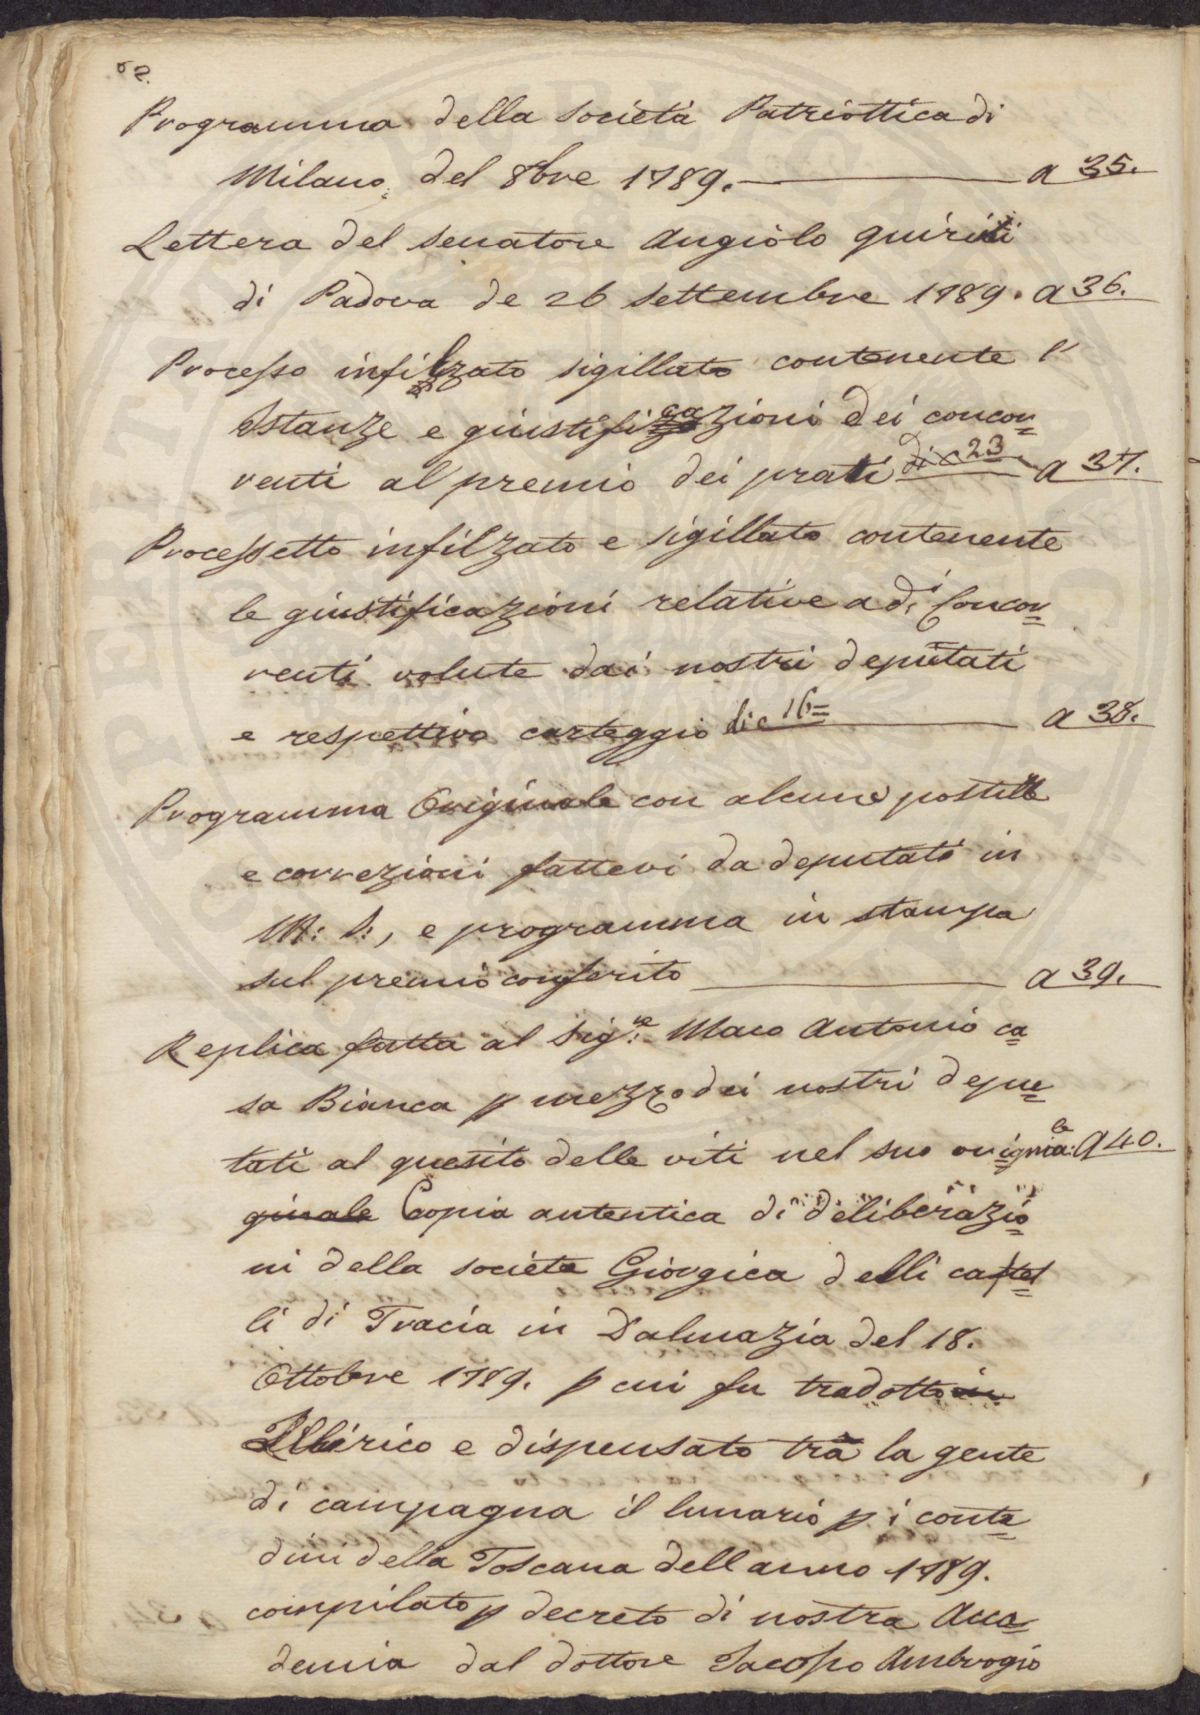 62.
Programma della Società Patriottica di
Milano, del 8bre 1789. a 35.
Lettera del senatore Angiolo quirini
di Padova de 26 settembre 1789. a 36.
Processo infilzato sigillato contenente l'
Istanze e giustificazioni dei concor=
renti al premio dei prati di c 23 a 37.
Processetto infilzato e sigillato contenente
le giustificazioni relative a di Concor=
renti volute dai nostri deputati
e respettivo carteggio di c 16= a 38.
Programma Originale con alcune postille
e correzioni fattevi da deputati in
M: S:, e programma in stampa
sul premio conferito a 39.
Replica fatta al Sig:re Marco Antonio ca=
sa Bianca p mezzo dei nostri depu=
tati al quesito delle viti nel suo originia:le a 40.
ginale Copia autentica di deliberazio=
ni della societa Giorgica delli castel=
li di Tracia in Dalmazia del 18.
Ottobre 1789. p cui fu tradotto in
Illirico e dispensato trà la gente
di campagna il lunario p i conta=
dini della Toscana dell anno 1789.
compilato p decreto di nostra Acca=
demia dal dottore Jacopo Ambrogio